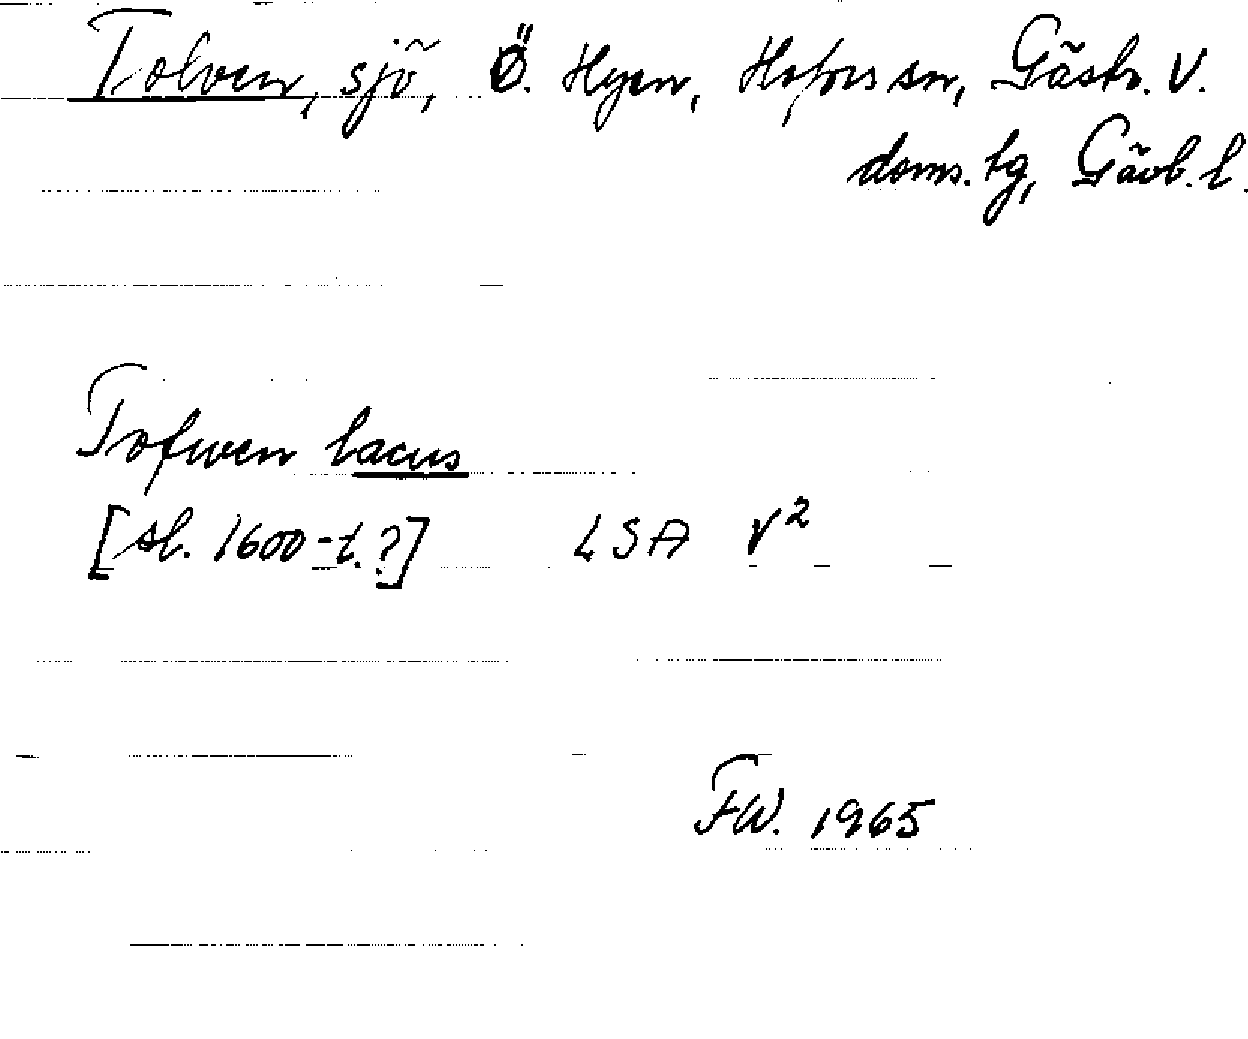 Tolven, sjö, Ö. Hyen, Hofors sn, Gästr. V.
doms. lg, Gävb. l.
Tofwen lacus
[sl. 1600-t.?] LSA V²
FW. 1965